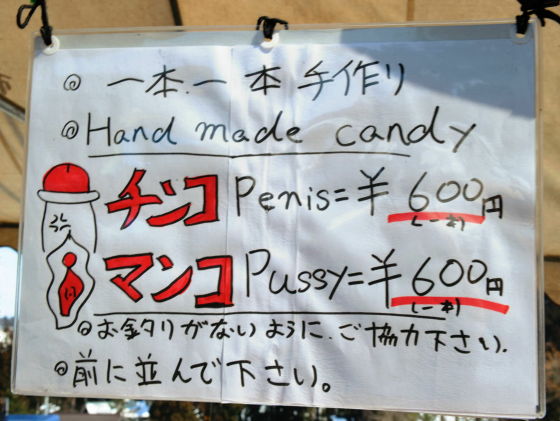 ◎一本一本手作り
◎Hand made candy
チンコ Penis=¥600円
(一本)
マンコ Pussy=¥600円
(一本)
◎お釣りがないように、ご協力下さい.
◎前に並んで下さい。